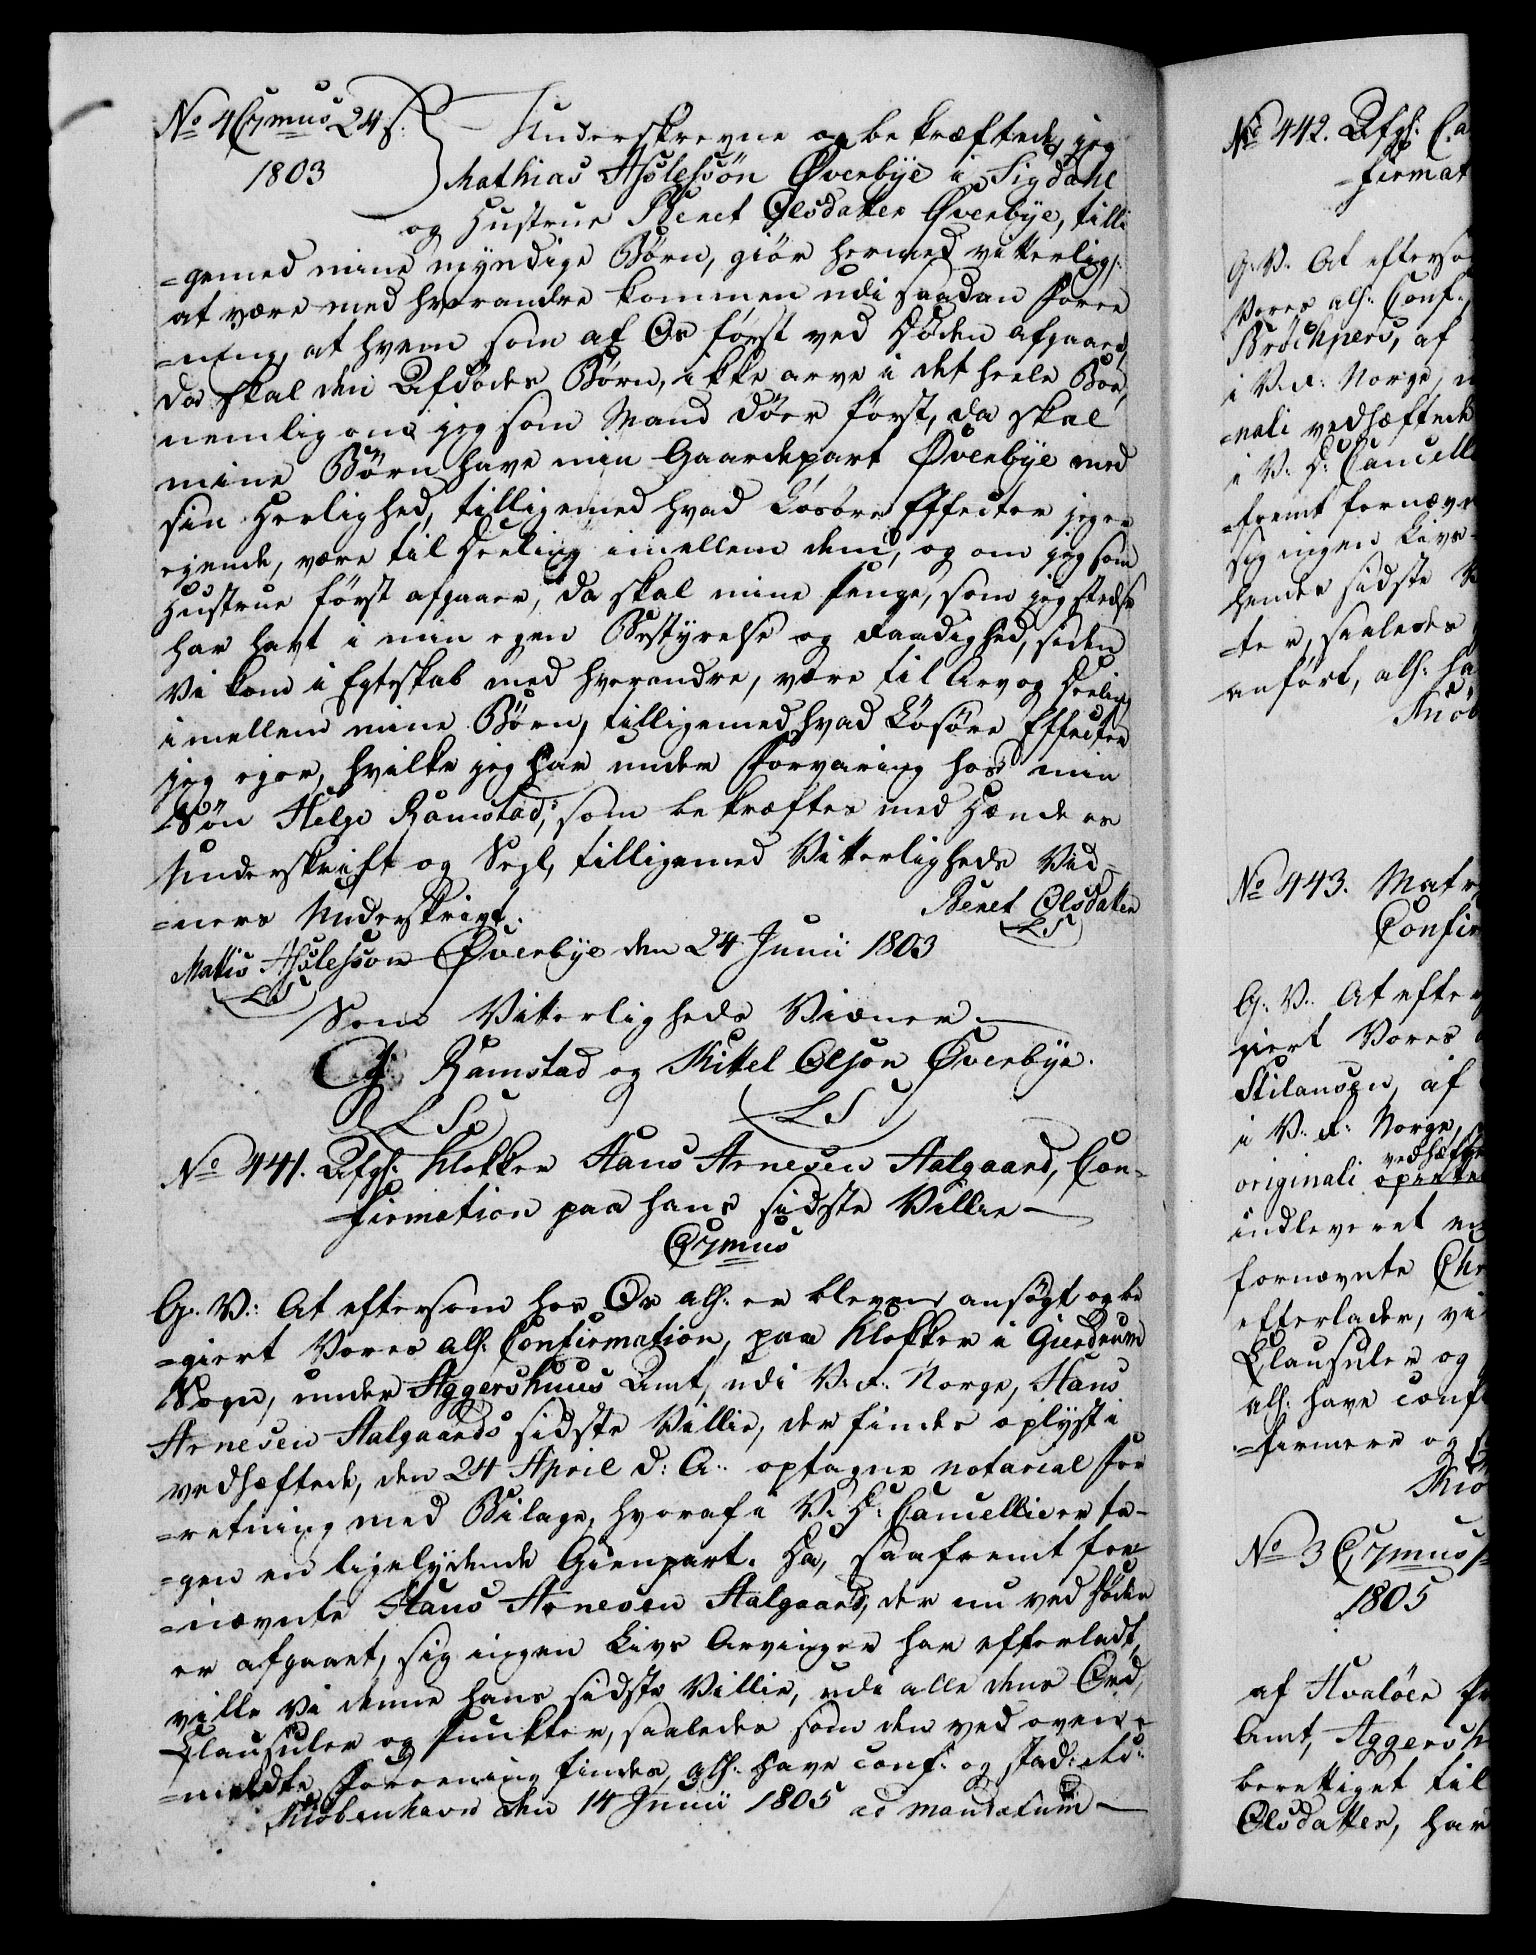 No 4 C7mus 24 s:
1803
Underskrevne og bekræftede, jeg
Mathias Asslessøn Øverbye i Sigdahl
og Hustrue Beret Olsdatter Øverbye, tilli
=gemed mine myndige Børn, giör hermed vitterlig:
at være med hverandre kommen udi saadan Foree
=ning, at hvem som af Os først ved Döden afgaaer,
da skal den Afdödes Børn, ikke arve i det heele Boe,
nemlig om jeg som Mand döer först, da skal
mine Børn have min Gaardepart Øverbye med
sin Herlighed, tilligemed hvad Lösöre Effecter jeg er
eyende, være til Deeling imellem dem, og om jeg som
Hustrue först afgaaer, da skal mine Penge, som jeg stedse
har havt i min egen Bestyrelse og Raadighed, siden
Vi kom i Egteskab med hverandre, være til Arv og Deeling
imellem mine Børn, tilligemed hvad Lösöre Effecter
jeg ejer, hvilke jeg har under Forvaring hos min
Sön Helge Ramstad, som bekræftes med Hænders
Underskrift og Segl, tilligemed Vitterligheds Vid=
=ners Underskrivt.
Beret Olsdatter
LS
Mattis Asslessøn Øverbye den 24 Junii 1803
LS
Som Vitterligheds Vidner
Ramstad og Kittel Olsøn Øverbye.
LS LS
No 441. Afg: Klokker Hans Arnesen Aalgaard, Con-
=firmation paa hans sidste Villie
C7mus
G. V: At eftersom hos Os alh: er bleven ansögt og be
=giert Vores alh: Confirmation, paa Klokker i Gierdrum
Sogn, under Aggershuus Amt, udi V. R: Norge, Hans
Arnesen Aalgaards sidste Villie, der findes oplyst i
vedhæftede, den 24 April d: A: optagne notarial For
=retning med Bilage, hvoraf i V. D: Cancellie er ta-
=gen en ligelydende Gienpart. Da, saafremt for
=nævnte Hans Arnesen Aalgaard, der nu ved Döden
er afgaaet, sig ingen Livs Arvinger har efterladt,
ville Vi denne hans sidste Villie, udi alle dens Ord,
Clausuler og Puncter, saaledes som den ved oven=
=meldte Forreening findes, alh: have conf: og stad:
Kiöbenhavn den 14 Junii 1805 ad mandatum
No 442. Afgl:
=firmat
G. V. At efterso
Vores alh: Conf.
Brochners, af
i V. R: Norge,
=nali vedhæftede
i V. D: Cancelli
=fremt fornævn
sig ingen Livs-
hendes sidste
=ter, saaledes
anfört, alh: ha
Kiöb
No 443. Matr
Confir
G. V. At efter
giert Vores
Stilansen, af
i V. R: Norge,
vedhæfte
originali
indleveret
fornævnte Chr
efterlader, vi
Clausuler og
alh: have conf
=firmere og
Kiö
No 3 C7mus
1805
af Hvalöer
Amt, Aggersh
berettiget til
Olsdatter, har